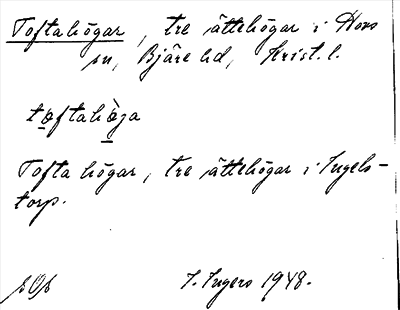 Toftahögar, tre ättehögar i Hovs
sn, Bjäre hd, Krist. l.
to̲ftahò̲ga
Tofta högar, tre ättehögar i Ingels-
torp.
I. Ingers 1948.